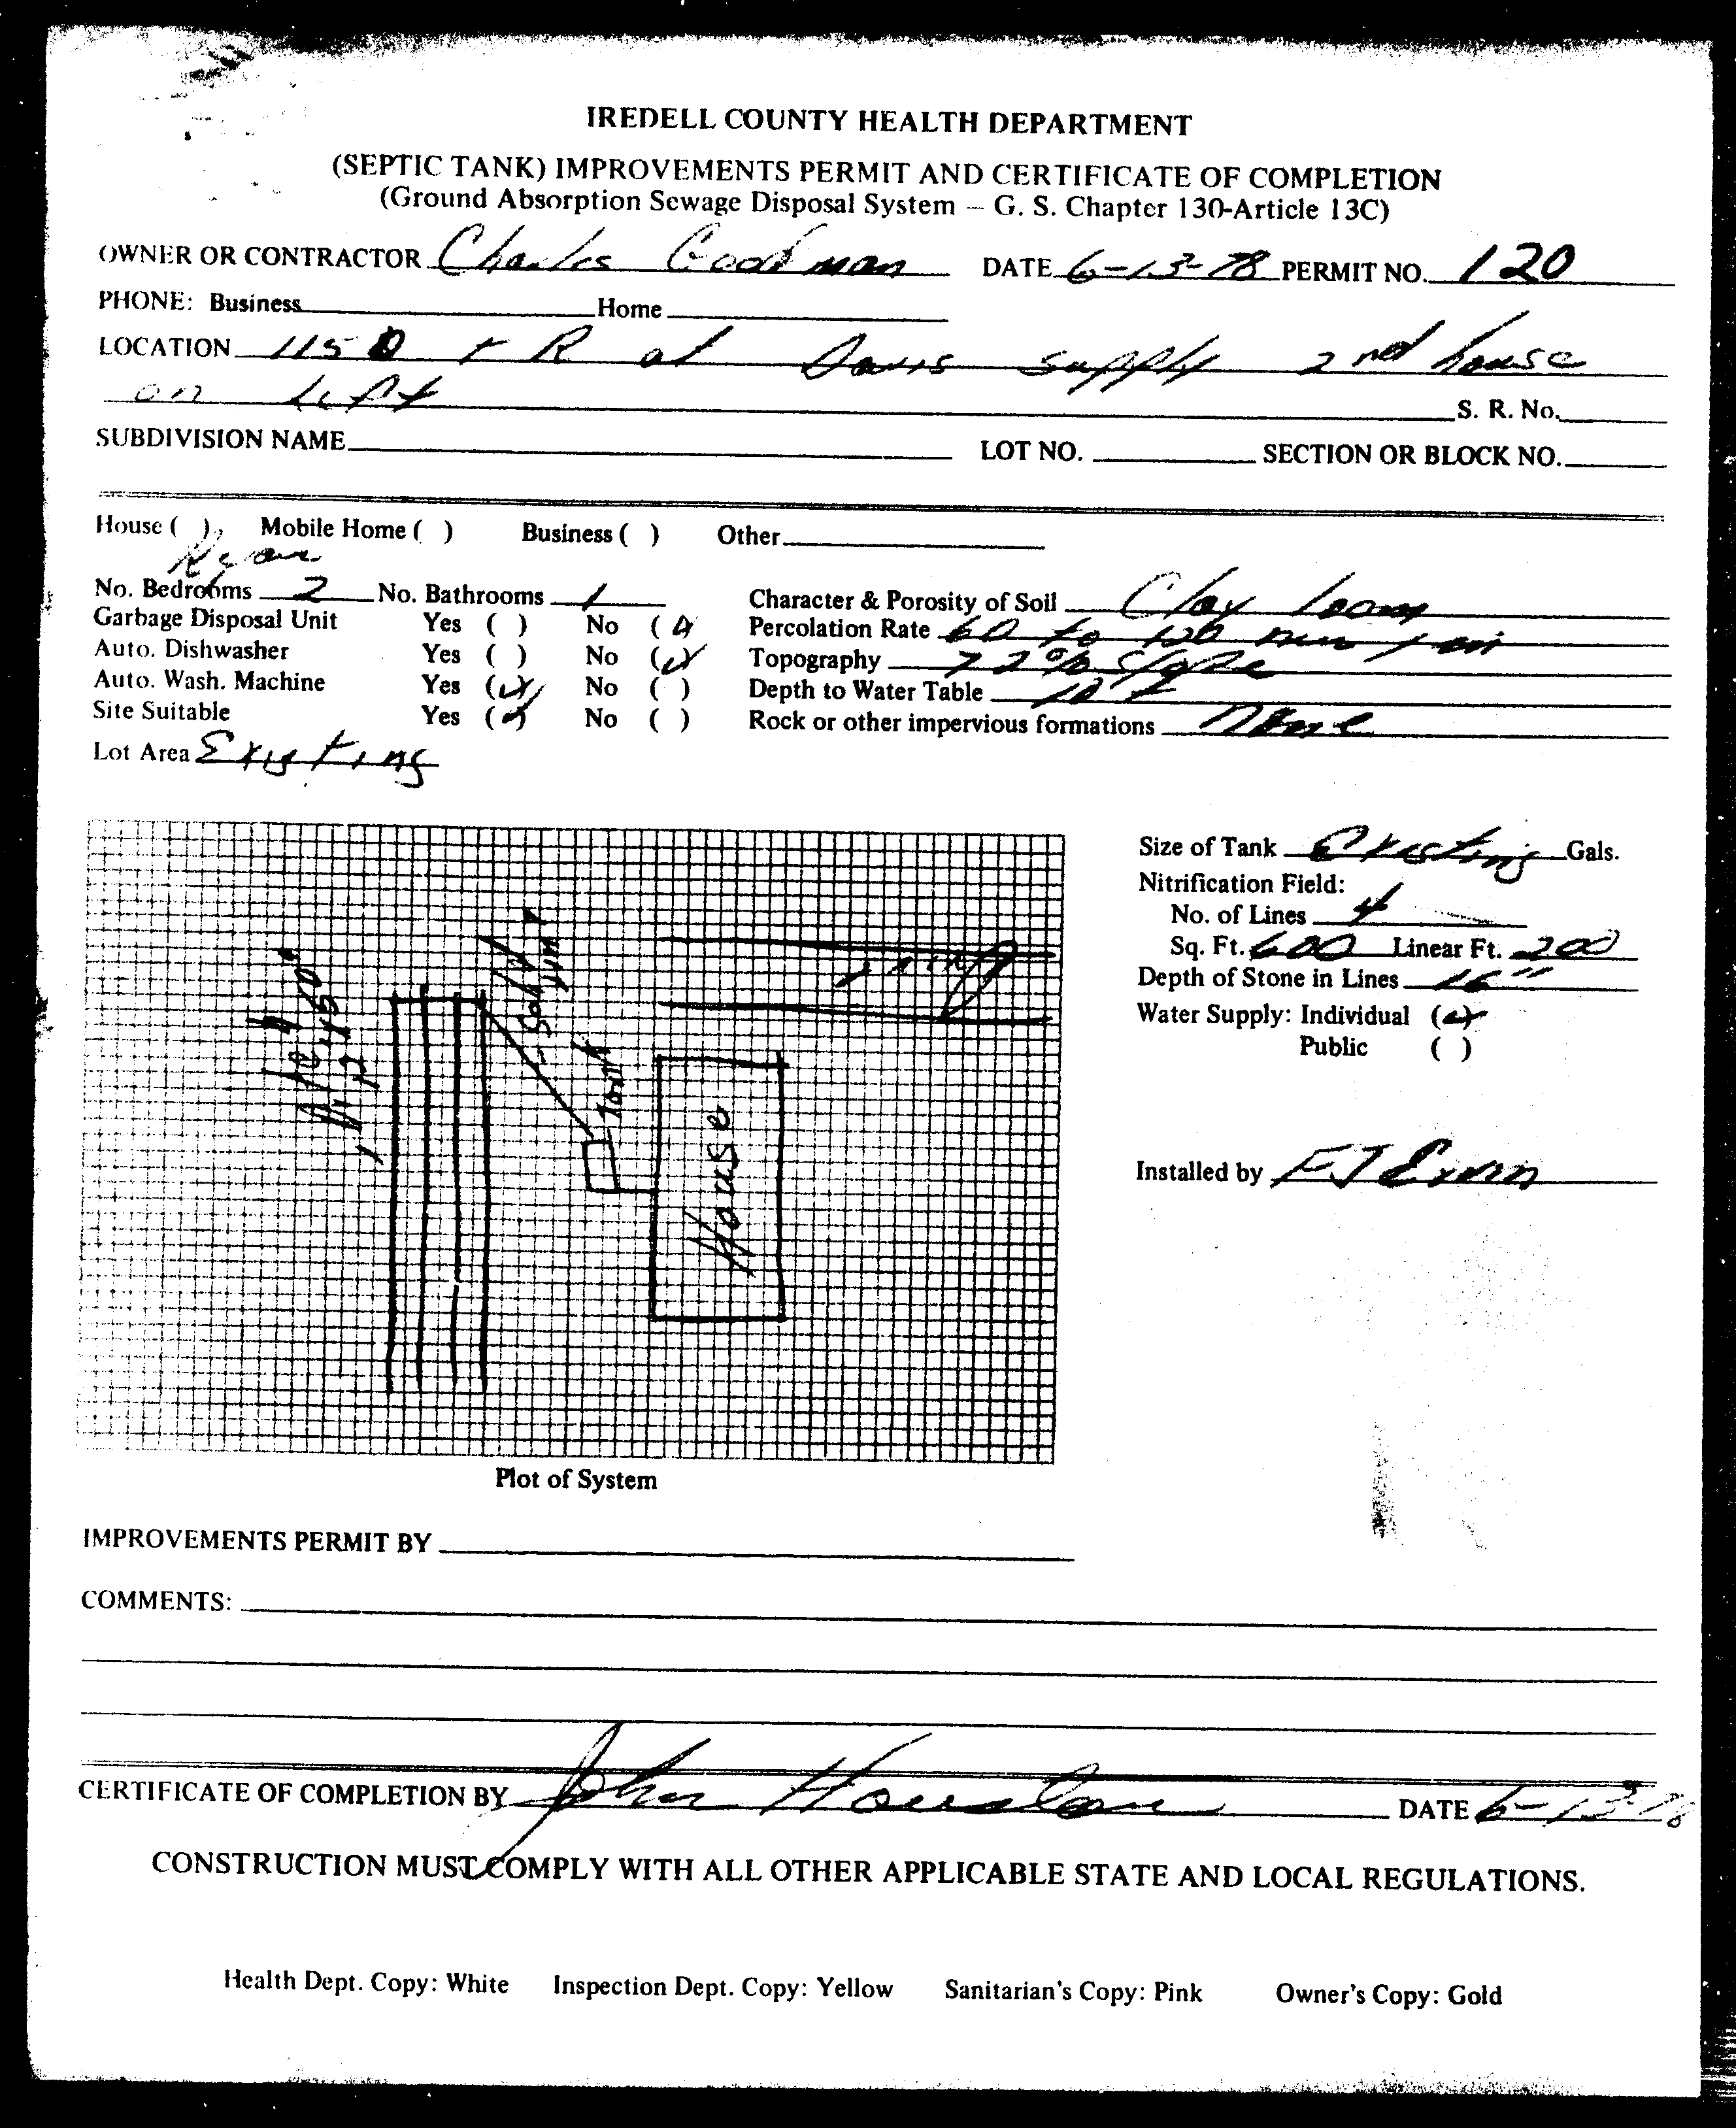 IREDELL COUNTY HEALTH DEPARTMENT
(SEPTIC TANK) IMPROVEMENTS PERMIT AND CERTIFICATE OF COMPLETION
(Ground Absorption Sewage Disposal System — G. S. Chapter 130-Article 13C)
OWNER OR CONTRACTOR Charles Goodman DATE 6-13-78 PERMIT NO. 120
PHONE: Business Home
LOCATION 115 + R at Davis supply 2nd house
on left S. R. No.
SUBDIVISION NAME LOT NO. SECTION OR BLOCK NO.
House ( ) Mobile Home ( ) Business ( ) Other
No. Bedrooms 2 No. Bathrooms 1 Character & Porosity of Soil Clay loam
Garbage Disposal Unit Yes ( ) No (✓) Percolation Rate 60 to 120 min / in
Auto. Dishwasher Yes ( ) No (✓) Topography 72% Slope
Auto. Wash. Machine Yes (✓) No ( ) Depth to Water Table 10 +
Site Suitable Yes (✓) No ( ) Rock or other impervious formations None
Lot Area Existing
Size of Tank Existing Gals.
Nitrification Field:
No. of Lines 4
Sq. Ft. 600 Linear Ft. 200
Depth of Stone in Lines 16"
Water Supply: Individual (✓)
Public ( )
Installed by
4
Solid
Tank
House
Plot of System
IMPROVEMENTS PERMIT BY
COMMENTS:
CERTIFICATE OF COMPLETION BY John Houston DATE 6-13-78
CONSTRUCTION MUST COMPLY WITH ALL OTHER APPLICABLE STATE AND LOCAL REGULATIONS.
Health Dept. Copy: White Inspection Dept. Copy: Yellow Sanitarian's Copy: Pink Owner's Copy: Gold